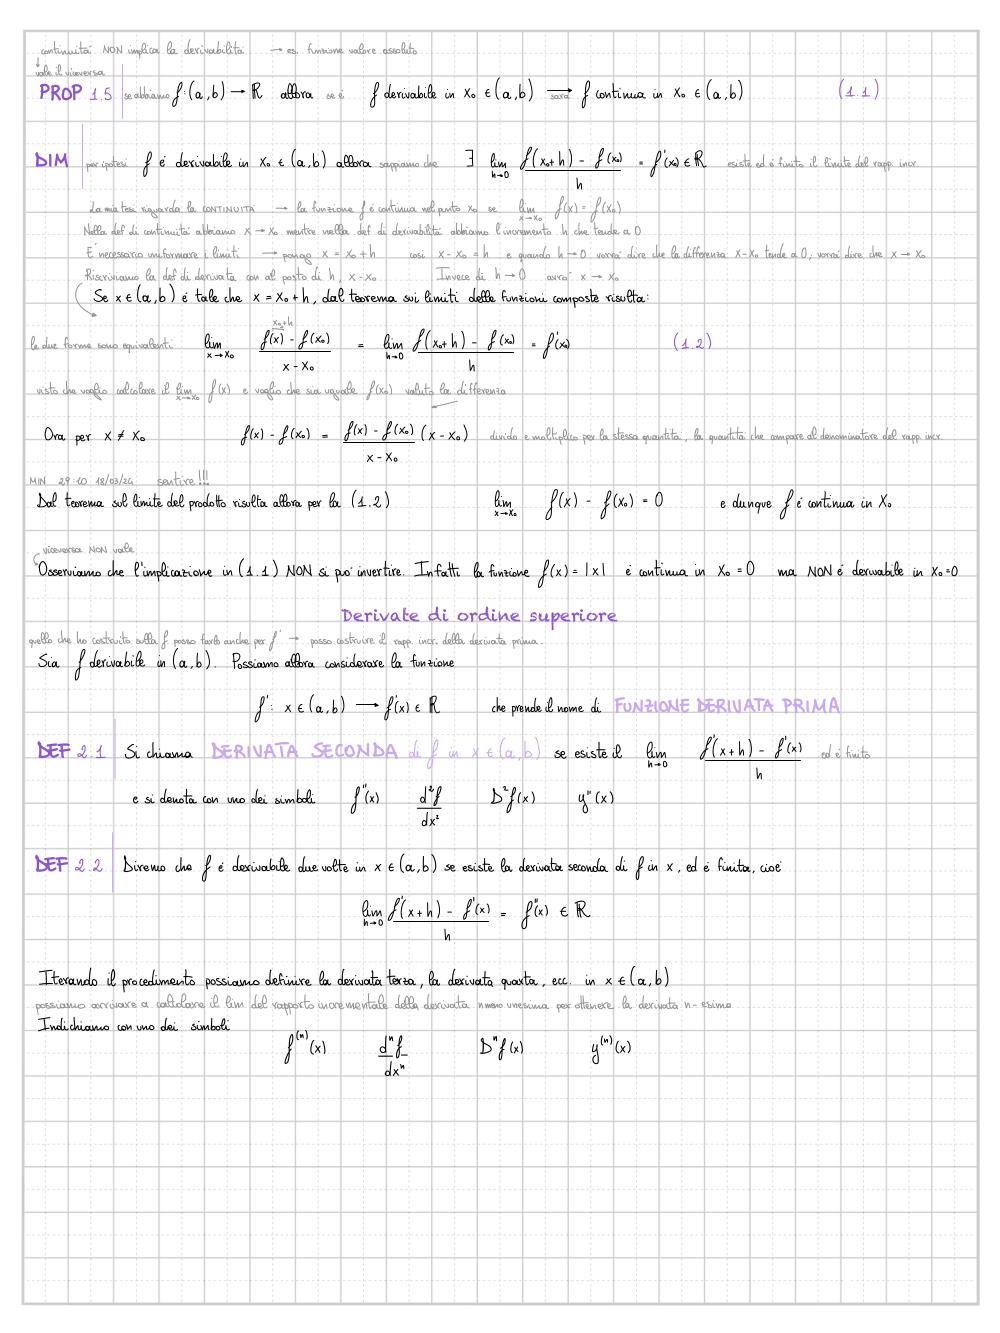 continuità NON implica la derivabilità → es. funzione valore assoluto
↓
vale il viceversa
PROP 1.5 se abbiamo f:(a,b) → ℝ allora se è f derivabile in x₀ ∈ (a,b) → sarà f continua in x₀ ∈ (a,b) (1.1)
DIM per ipotesi f è derivabile in x₀ ∈ (a,b) allora sappiamo che ∃ lim h→0 f(x₀+h) - f(x₀) / h = f'(x₀) ∈ ℝ esiste ed è finito il limite del rapp. incr.
La mia tesi riguarda la CONTINUITÀ → la funzione f è continua nel punto x₀ se lim x→x₀ f(x) = f(x₀)
Nella def di continuità abbiamo x → x₀ mentre nella def di derivabilità abbiamo l'incremento h che tende a 0
È necessario uniformare i limiti → pongo x = x₀ + h così x - x₀ = h e quando h → 0 vorrà dire che la differenza x-x₀ tende a 0, vorrà dire che x → x₀
Riscriviamo la def di derivata con al posto di h, x-x₀ Invece di h → 0 avrò x → x₀
Se x ∈ (a,b) è tale che x = x₀ + h, dal teorema sui limiti delle funzioni composte risulta:
x₀+h
le due forme sono equivalenti lim x→x₀ f(x) - f(x₀) / x - x₀ = lim h→0 f(x₀+h) - f(x₀) / h = f'(x₀) (1.2)
visto che voglio calcolare il lim x→x₀ f(x) e voglio che sia uguale f(x₀) valuto la differenza
Ora per x ≠ x₀ f(x) - f(x₀) = f(x) - f(x₀) / x - x₀ (x - x₀) divido e moltiplico per la stessa quantità, la quantità che compare al denominatore del rapp. incr.
MIN 29:40 18/03/24 sentire!!!
Dal teorema sul limite del prodotto risulta allora per la (1.2) lim x→x₀ f(x) - f(x₀) = 0 e dunque f è continua in x₀
viceversa NON vale
Osserviamo che l'implicazione in (1.1) NON si può invertire. Infatti la funzione f(x) = |x| è continua in x₀ = 0 ma NON è derivabile in x₀=0
Derivate di ordine superiore
quello che ho costruito sulla f posso farlo anche per f' → posso costruire il rapp. incr. della derivata prima.
Sia f derivabile in (a,b). Possiamo allora considerare la funzione
f': x ∈ (a,b) → f'(x) ∈ ℝ che prende il nome di FUNZIONE DERIVATA PRIMA
DEF 2.1 Si chiama DERIVATA SECONDA di f in x ∈ (a,b) se esiste il lim h→0 f'(x+h) - f'(x) / h ed è finito
e si denota con uno dei simboli f''(x) d²f / dx² D²f(x) y''(x)
DEF 2.2 Diremo che f è derivabile due volte in x ∈ (a,b) se esiste la derivata seconda di f in x, ed è finita, cioè
lim h→0 f'(x+h) - f'(x) / h = f''(x) ∈ ℝ
Iterando il procedimento possiamo definire la derivata terza, la derivata quarta, ecc. in x ∈ (a,b)
possiamo arrivare a calcolare il lim del rapporto incrementale della derivata n meno unesima per ottenere la derivata n-esima.
Indichiamo con uno dei simboli
f⁽ⁿ⁾(x) dⁿf / dxⁿ Dⁿf(x) y⁽ⁿ⁾(x)